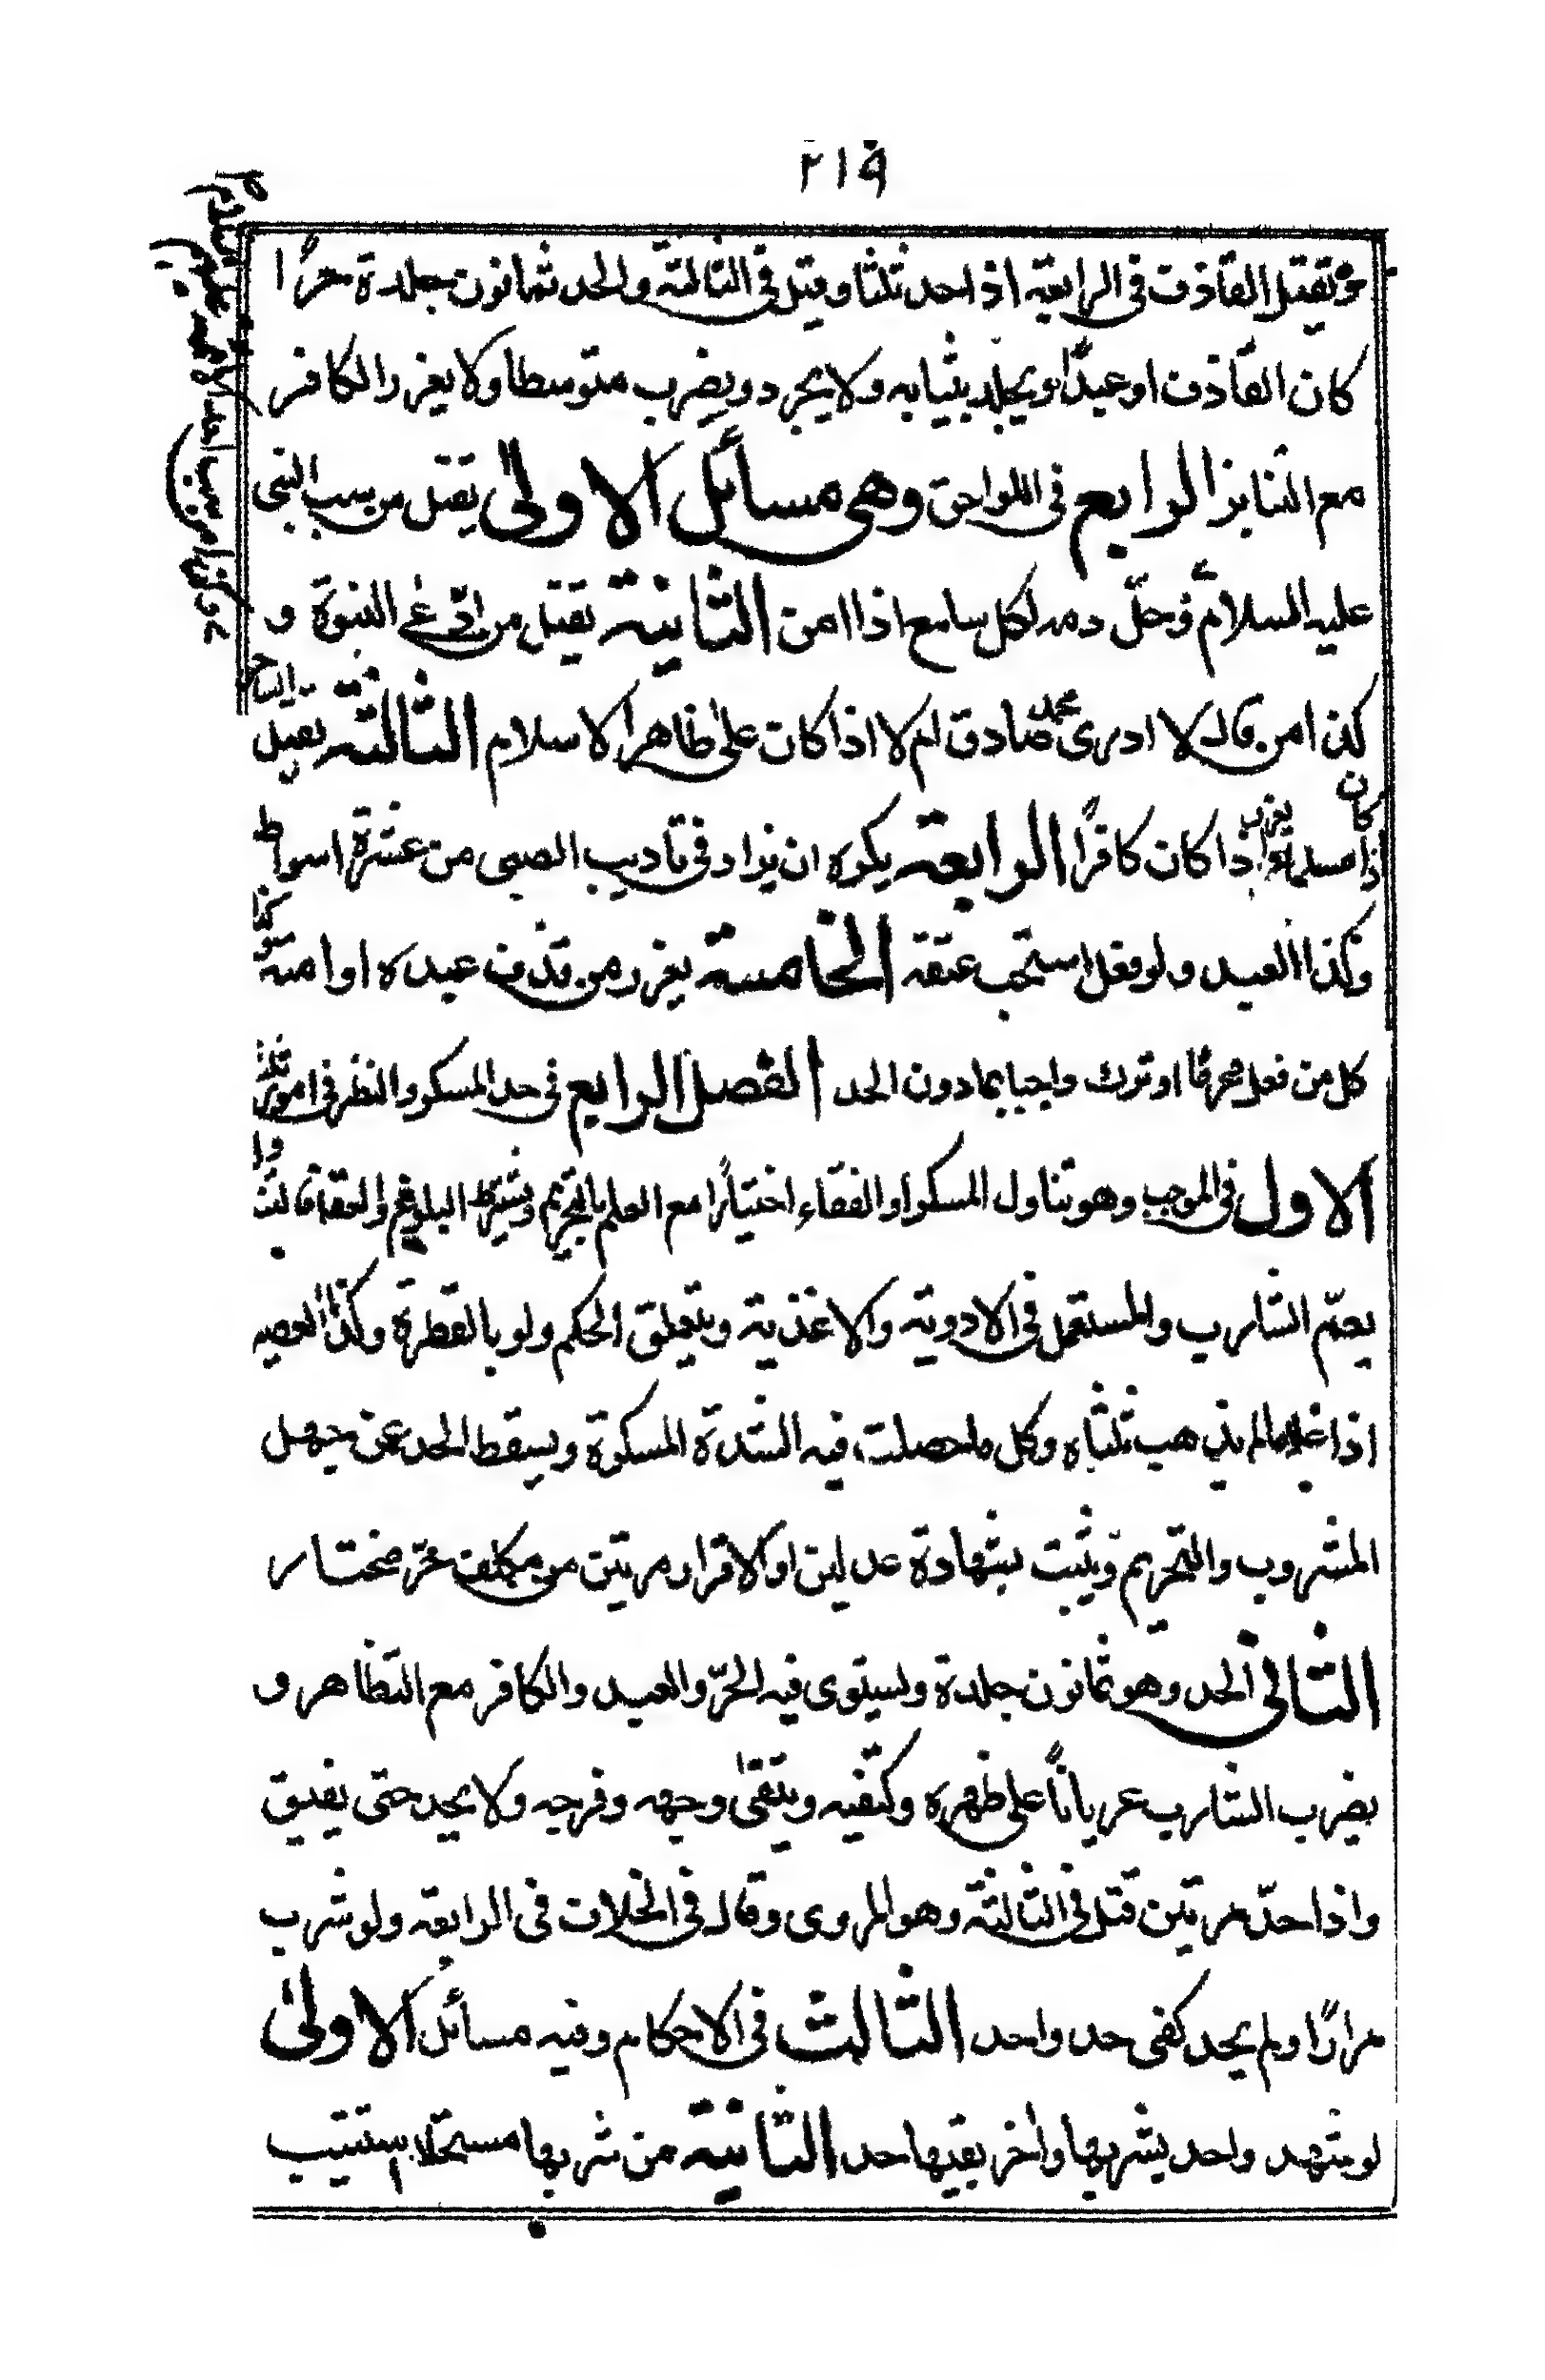 ٢١٩
ويقتل القاذف فى الرابعة اذا حد ثلثا وقيل فى الثالثة والحد ثمانون جلدة حرًا
كان القاذف او عبدًا ويجلد بثيابه ولا يجرد ويضرب متوسطا ولا يعزر الكافر
مع التنابز الرابع فى اللواحق وهى مسائل الاولى يقتل من سب النبى
عليه السلام وحلّ دمه لكل سامع اذا امن الثانية يقتل من ادّعى النبوة و
كذا من قال لا ادرى محمد صادق ام لا اذا كان على ظاهر الاسلام الثالثة يقتل الساحر
اذا كان مسلما ويعزر اذا كان كافرًا الرابعة يكره ان يزاد فى تاديب الصبى من عشرة اسواط
وكذا العبد ولو فعل استحب عتقه الخامسة يعزر من قذف عبده او امته وكذا
كل من فعل محرمًا او ترك واجبا بما دون الحد الفصل الرابع فى حد المسكر والنظر فى امور ثلثة
الاول فى الموجب وهو تناول المسكر او الفقاع اختيارًا مع العلم بالتحريم ويشترط البلوغ والعقل فالتناول
يعمّ الشارب والمستعمل فى الادوية والاغذية ويتعلق الحكم ولو بالقطرة وكذا العصير
اذا غلا ما لم يذهب ثلثاه وكل ما حصلت فيه الشدة المسكرة ويسقط الحد عن جهل
المشروب والتحريم ويثبت بشهادة عدلين او الاقرار مرتين من مكلف حرّ مختار
الثانى الحد وهو ثمانون جلدة ويستوى فيه الحرّ والعبد والكافر مع التظاهر و
يضرب الشارب عريانًا على ظهره وكتفيه ويتقى وجهه وفرجه ولا يحد حتى يفيق
واذا حدّ مرتين قتل فى الثالثة وهو المروى وقال فى الخلاف فى الرابعة ولو شرب
مرارًا ولم يحد كفى حد واحد الثالث فى الاحكام وفيه مسائل الاولى
لو شهد واحد بشربها واخر بقيئها حد الثانية من شربها مستحلا استتيب
وكذا من سب احد الائمة عليهم السلام